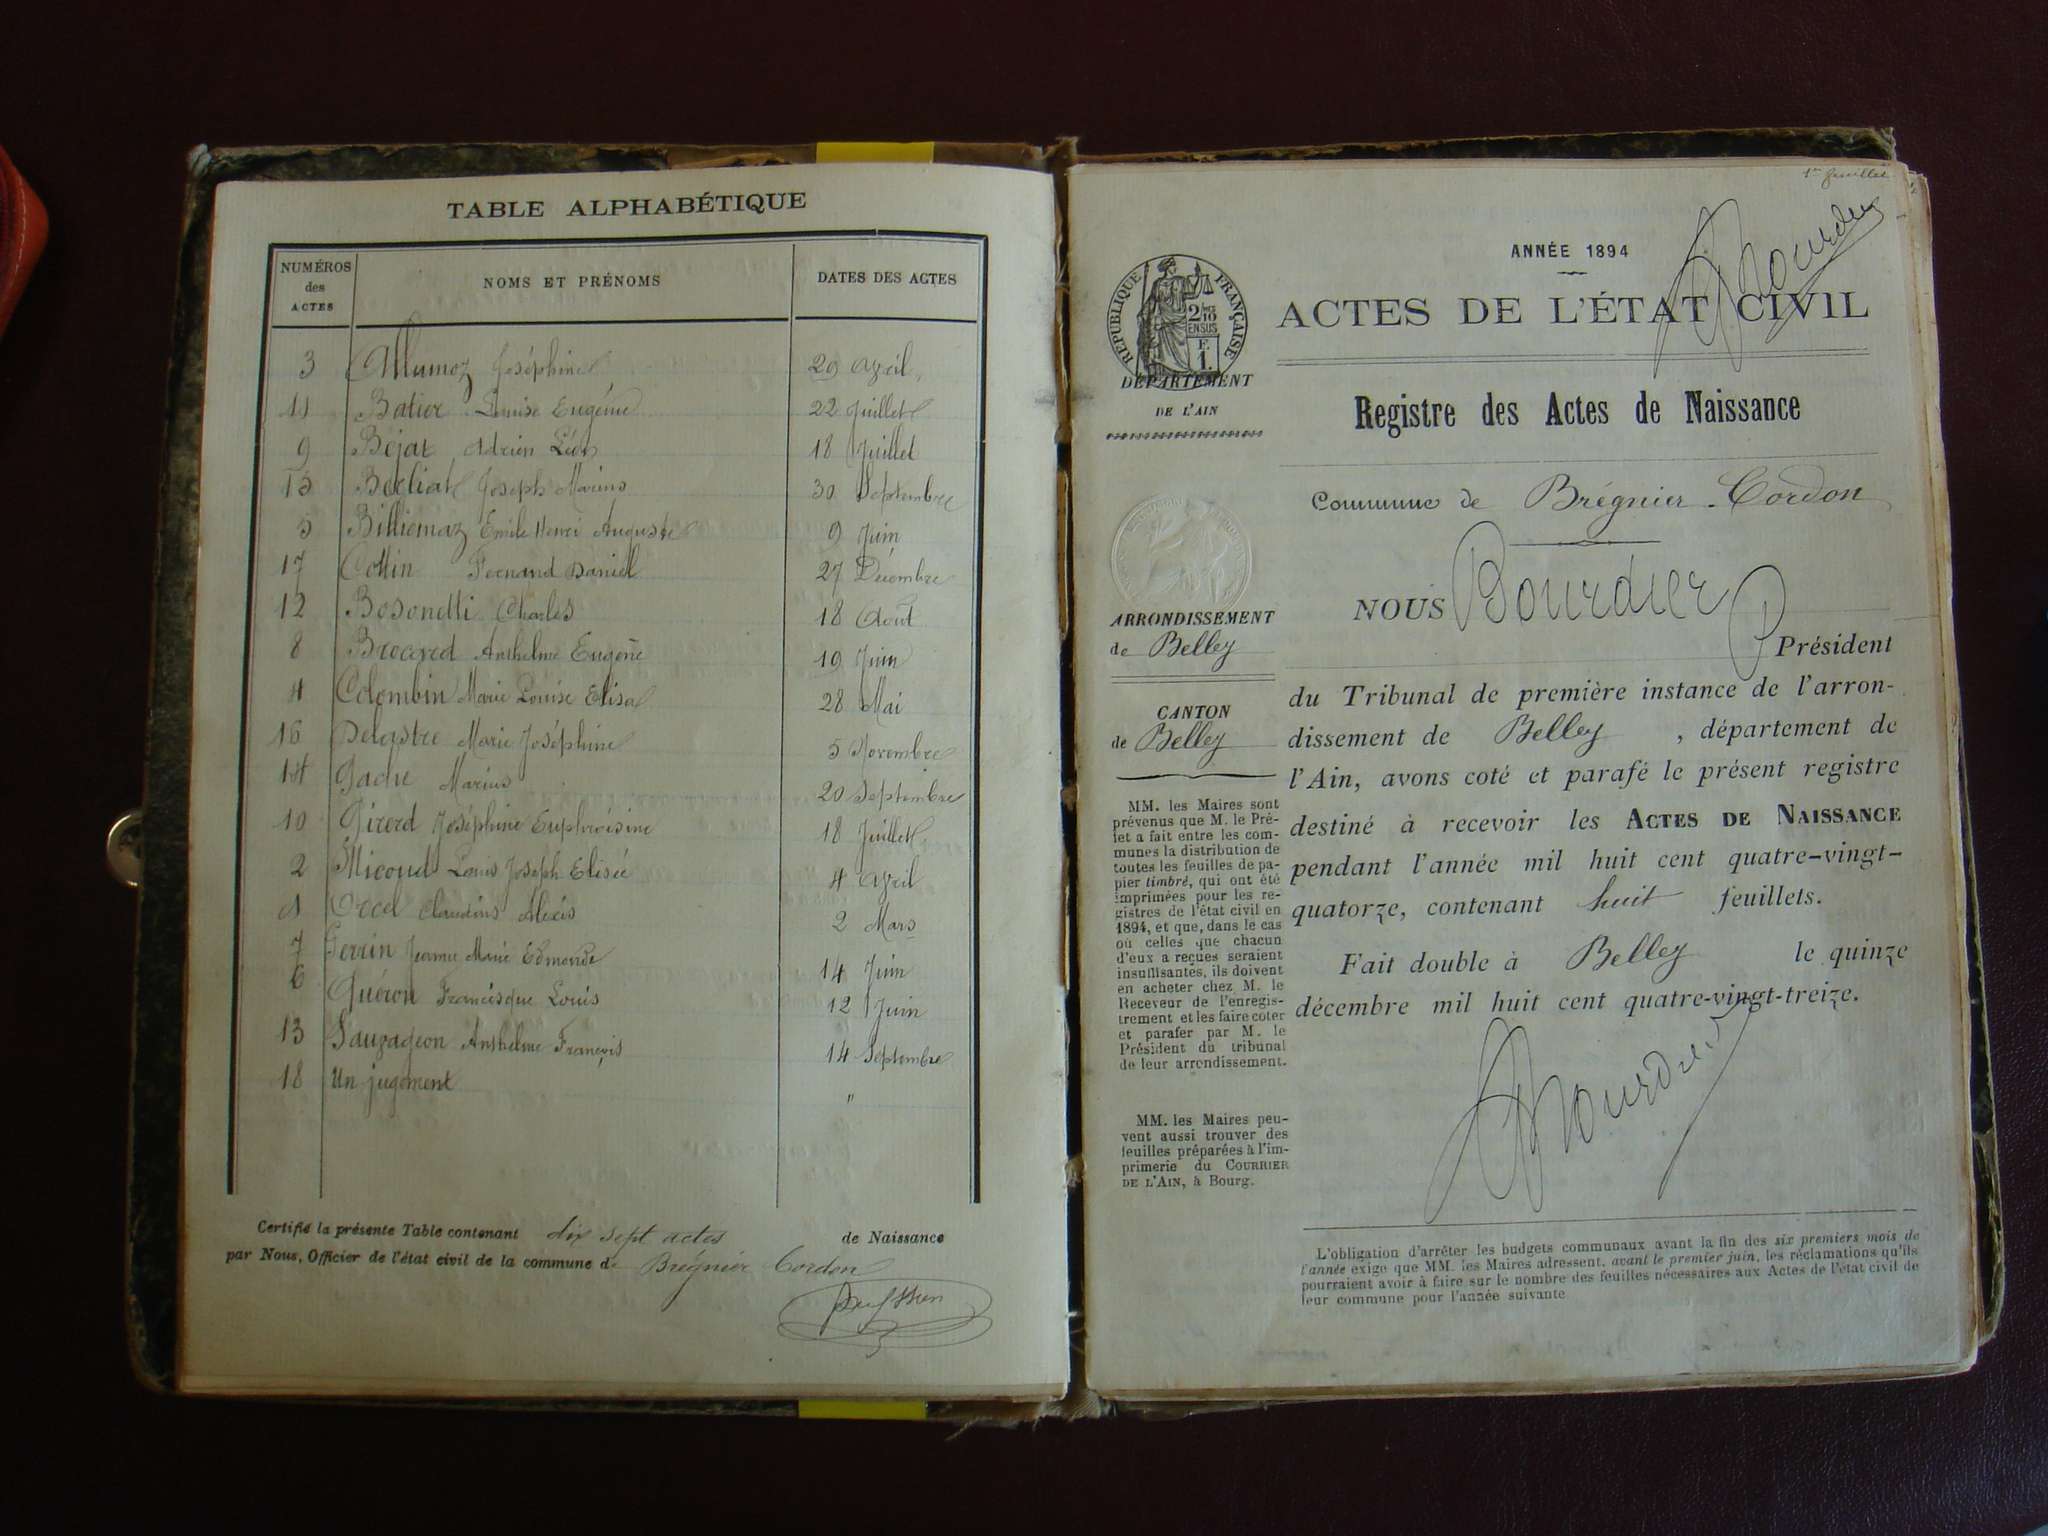 TABLE ALPHABÉTIQUE
NUMÉROS des ACTES NOMS ET PRÉNOMS DATES DES ACTES
3 Allumoz Joséphine 29 Avril
11 Batier Louise Eugénie 22 Juillet
9 Béjat Adrien Léon 18 Juillet
15 Berliat Joseph Marius 30 Septembre
5 Billiemaz Emile Henri Auguste 9 Juin
17 Cottin Fernand Daniel 27 Décembre
12 Bosonetti Charles 18 Août
8 Brocard Anthelme Eugène 19 Juin
4 Colombin Marie Louise Elisa 28 Mai
16 Delastre Marie Joséphine 5 Novembre
14 Gache Marius 20 Septembre
10 Girerd Joséphine Euphroisine 18 Juillet
2 Micoud Louis Joseph Elisée 4 Avril
1 Orcel Claudius Alexis 2 Mars
7 Perrin Jeanne Marie Edmonde 14 Juin
6 Quéron Francisque Louis 12 Juin
13 Sauzageon Anthelme François 14 Septembre
18 Un jugement "
Certifié la présente Table contenant dix sept actes de Naissance
par Nous, Officier de l'état civil de la commune de Brégnier Cordon
1er feuillet
Bourdier
ANNÉE 1894
RÉPUBLIQUE FRANÇAISE
2/10 EN SUS
F. 1.
ACTES DE L'ÉTAT CIVIL
DÉPARTEMENT
DE L'AIN
Registre des Actes de Naissance
Commune de Brégnier-Cordon
NOUS Bourdier
Président
ARRONDISSEMENT
de Belley
CANTON
de Belley
du Tribunal de première instance de l'arron-
dissement de Belley, département de
l'Ain, avons coté et parafé le présent registre
destiné à recevoir les ACTES DE NAISSANCE
pendant l'année mil huit cent quatre-vingt-
quatorze, contenant huit feuillets.
Fait double à Belley le quinze
décembre mil huit cent quatre-vingt-treize.
Bourdier
MM. les Maires sont
prévenus que M. le Pré-
fet a fait entre les com-
munes la distribution de
toutes les feuilles de pa-
pier timbré, qui ont été
imprimées pour les re-
gistres de l'état civil en
1894, et que, dans le cas
où celles que chacun
d'eux a reçues seraient
insuffisantes, ils doivent
en acheter chez M. le
Receveur de l'enregis-
trement et les faire coter
et parafer par M. le
Président du tribunal
de leur arrondissement.
MM. les Maires peu-
vent aussi trouver des
feuilles préparées à l'im-
primerie du COURRIER
DE L'AIN, à Bourg.
L'obligation d'arrêter les budgets communaux avant la fin des six premiers mois de
l'année exige que MM. les Maires adressent, avant le premier juin, les réclamations qu'ils
pourraient avoir à faire sur le nombre des feuilles nécessaires aux Actes de l'état civil de
leur commune pour l'année suivante